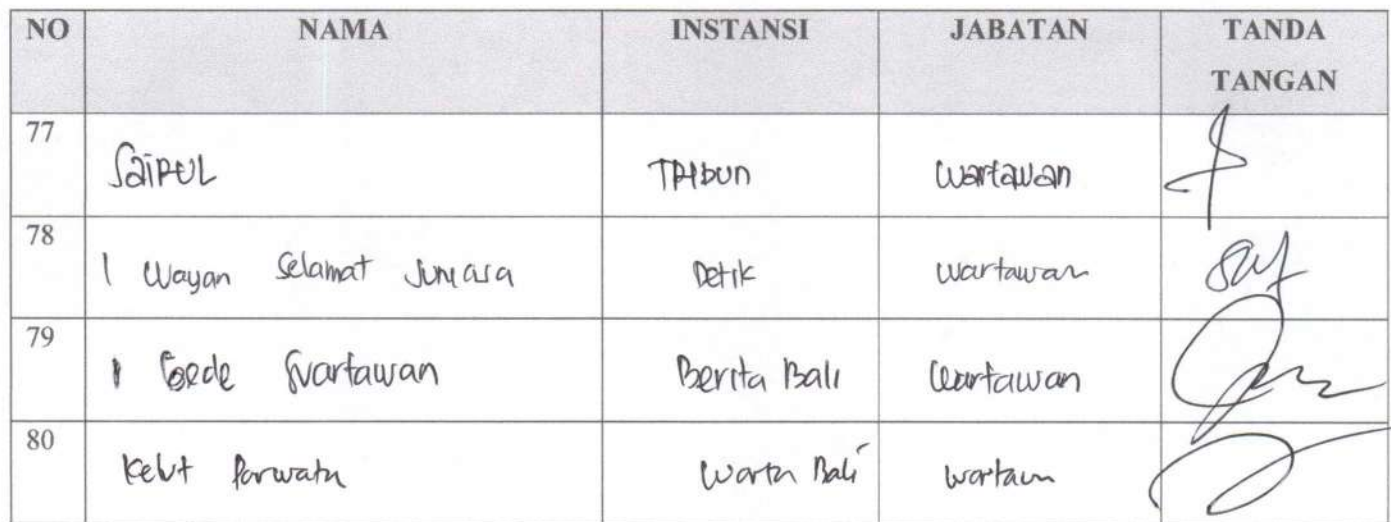 NO NAMA INSTANSI JABATAN TANDA TANGAN
77 Saipul Tribun Wartawan
78 I Wayan Selamat Juniasa Detik wartawan
79 I Gede Suartawan Berita Bali Wartawan
80 Ketut Parwata Warta Bali wartawn